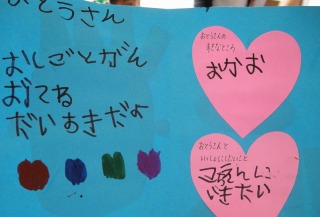 おとうさん
おしごとがん
おてる
だいすきだよ
おとうさんの
すきなところ
おかお
おとうさんと
いっしょにしたいこと
いきたい